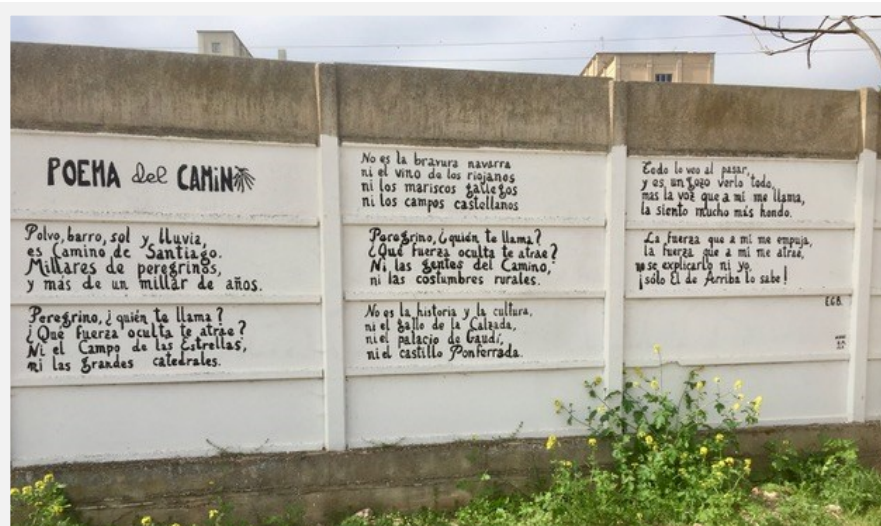 POEMA del CAMINO
Polvo, barro, sol y lluvia,
es Camino de Santiago.
Millares de peregrinos,
y más de un millar de años.
Peregrino, ¿quién te llama?
¿Qué fuerza oculta te atrae?
Ni el Campo de las Estrellas,
ni las grandes catedrales.
No es la bravura navarra
ni el vino de los riojanos
ni los mariscos gallegos
ni los campos castellanos
Peregrino, ¿quién te llama?
¿Qué fuerza oculta te atrae?
Ni las gentes del Camino,
ni las costumbres rurales.
No es la historia y la cultura,
ni el gallo de la Calzada,
ni el palacio de Gaudí,
ni el castillo Ponferrada.
Todo lo veo al pasar,
y es un gozo verlo todo,
mas la voz que a mi me llama,
la siento mucho más hondo.
La fuerza que a mi me empuja,
la fuerza que a mi me atrae,
no se explicarlo ni yo,
¡sólo El de Arriba lo sabe!
E.G.B.